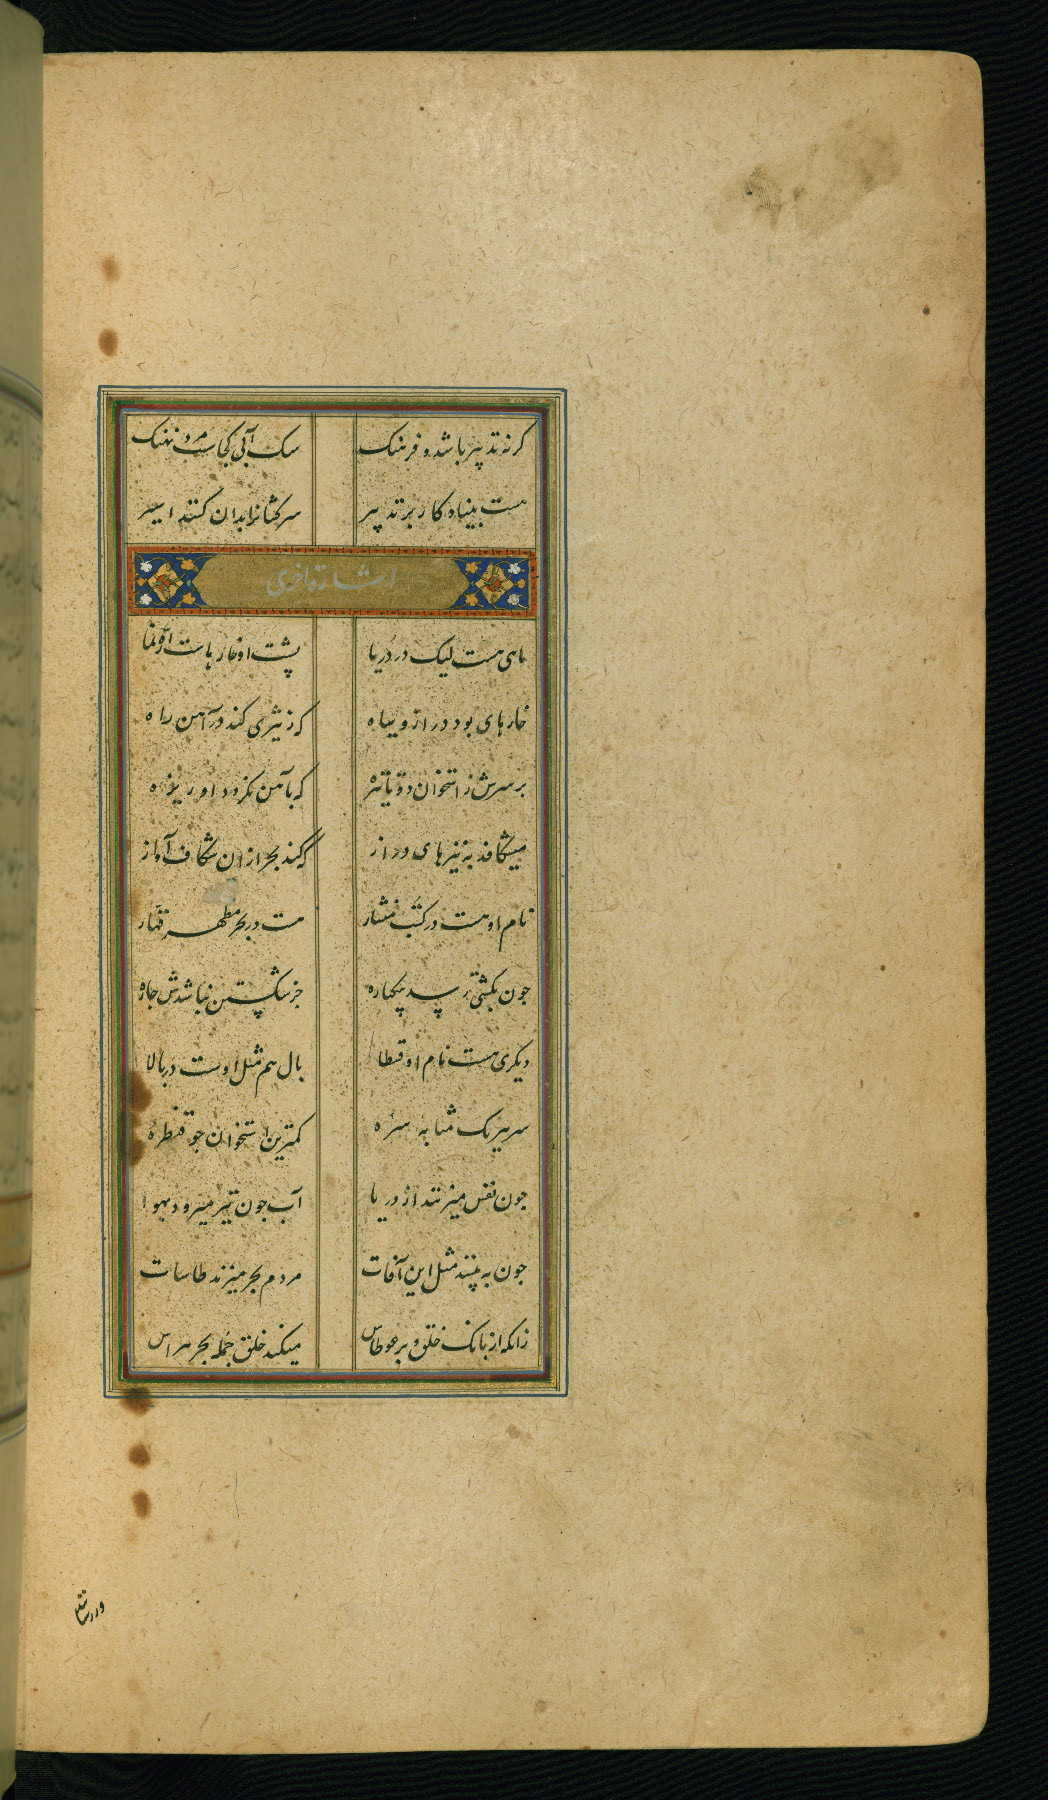 کرنه تدبیر باشد و فرهنک سک آبی کجاست مرد نهنک
هست بیناه کار بر تدبیر سرکشانرا بدان کنند اسیر
اشارة اخری
ماهی هست لیک در دریا پشت او خارهاست
خارهای بود دراز و سیاه که ز تیزی کند در آهن راه
بر سرش ز استخوان دو که بآهن
میشکافد به تیزهای دراز که کند بحر ازان شکاف آواز
نام او هست در کتب منشار هست در بحر مظهر قهار
چون بکشتی رسد یکباره جز شکستن نباشدش چاره
دیکری هست نام او قطا بال هم مثل اوست در بالا
سر بزرک مثابه سره کمترین استخوان چو قنطره
چون نفس میزنند از دریا آب چون تیر میرود بهوا
چون به بینند مثل این آفات مردم بحر میزند طاسات
زانکه از بانک خلق و بر عو طاس میکند خلق جمله بحر هراس